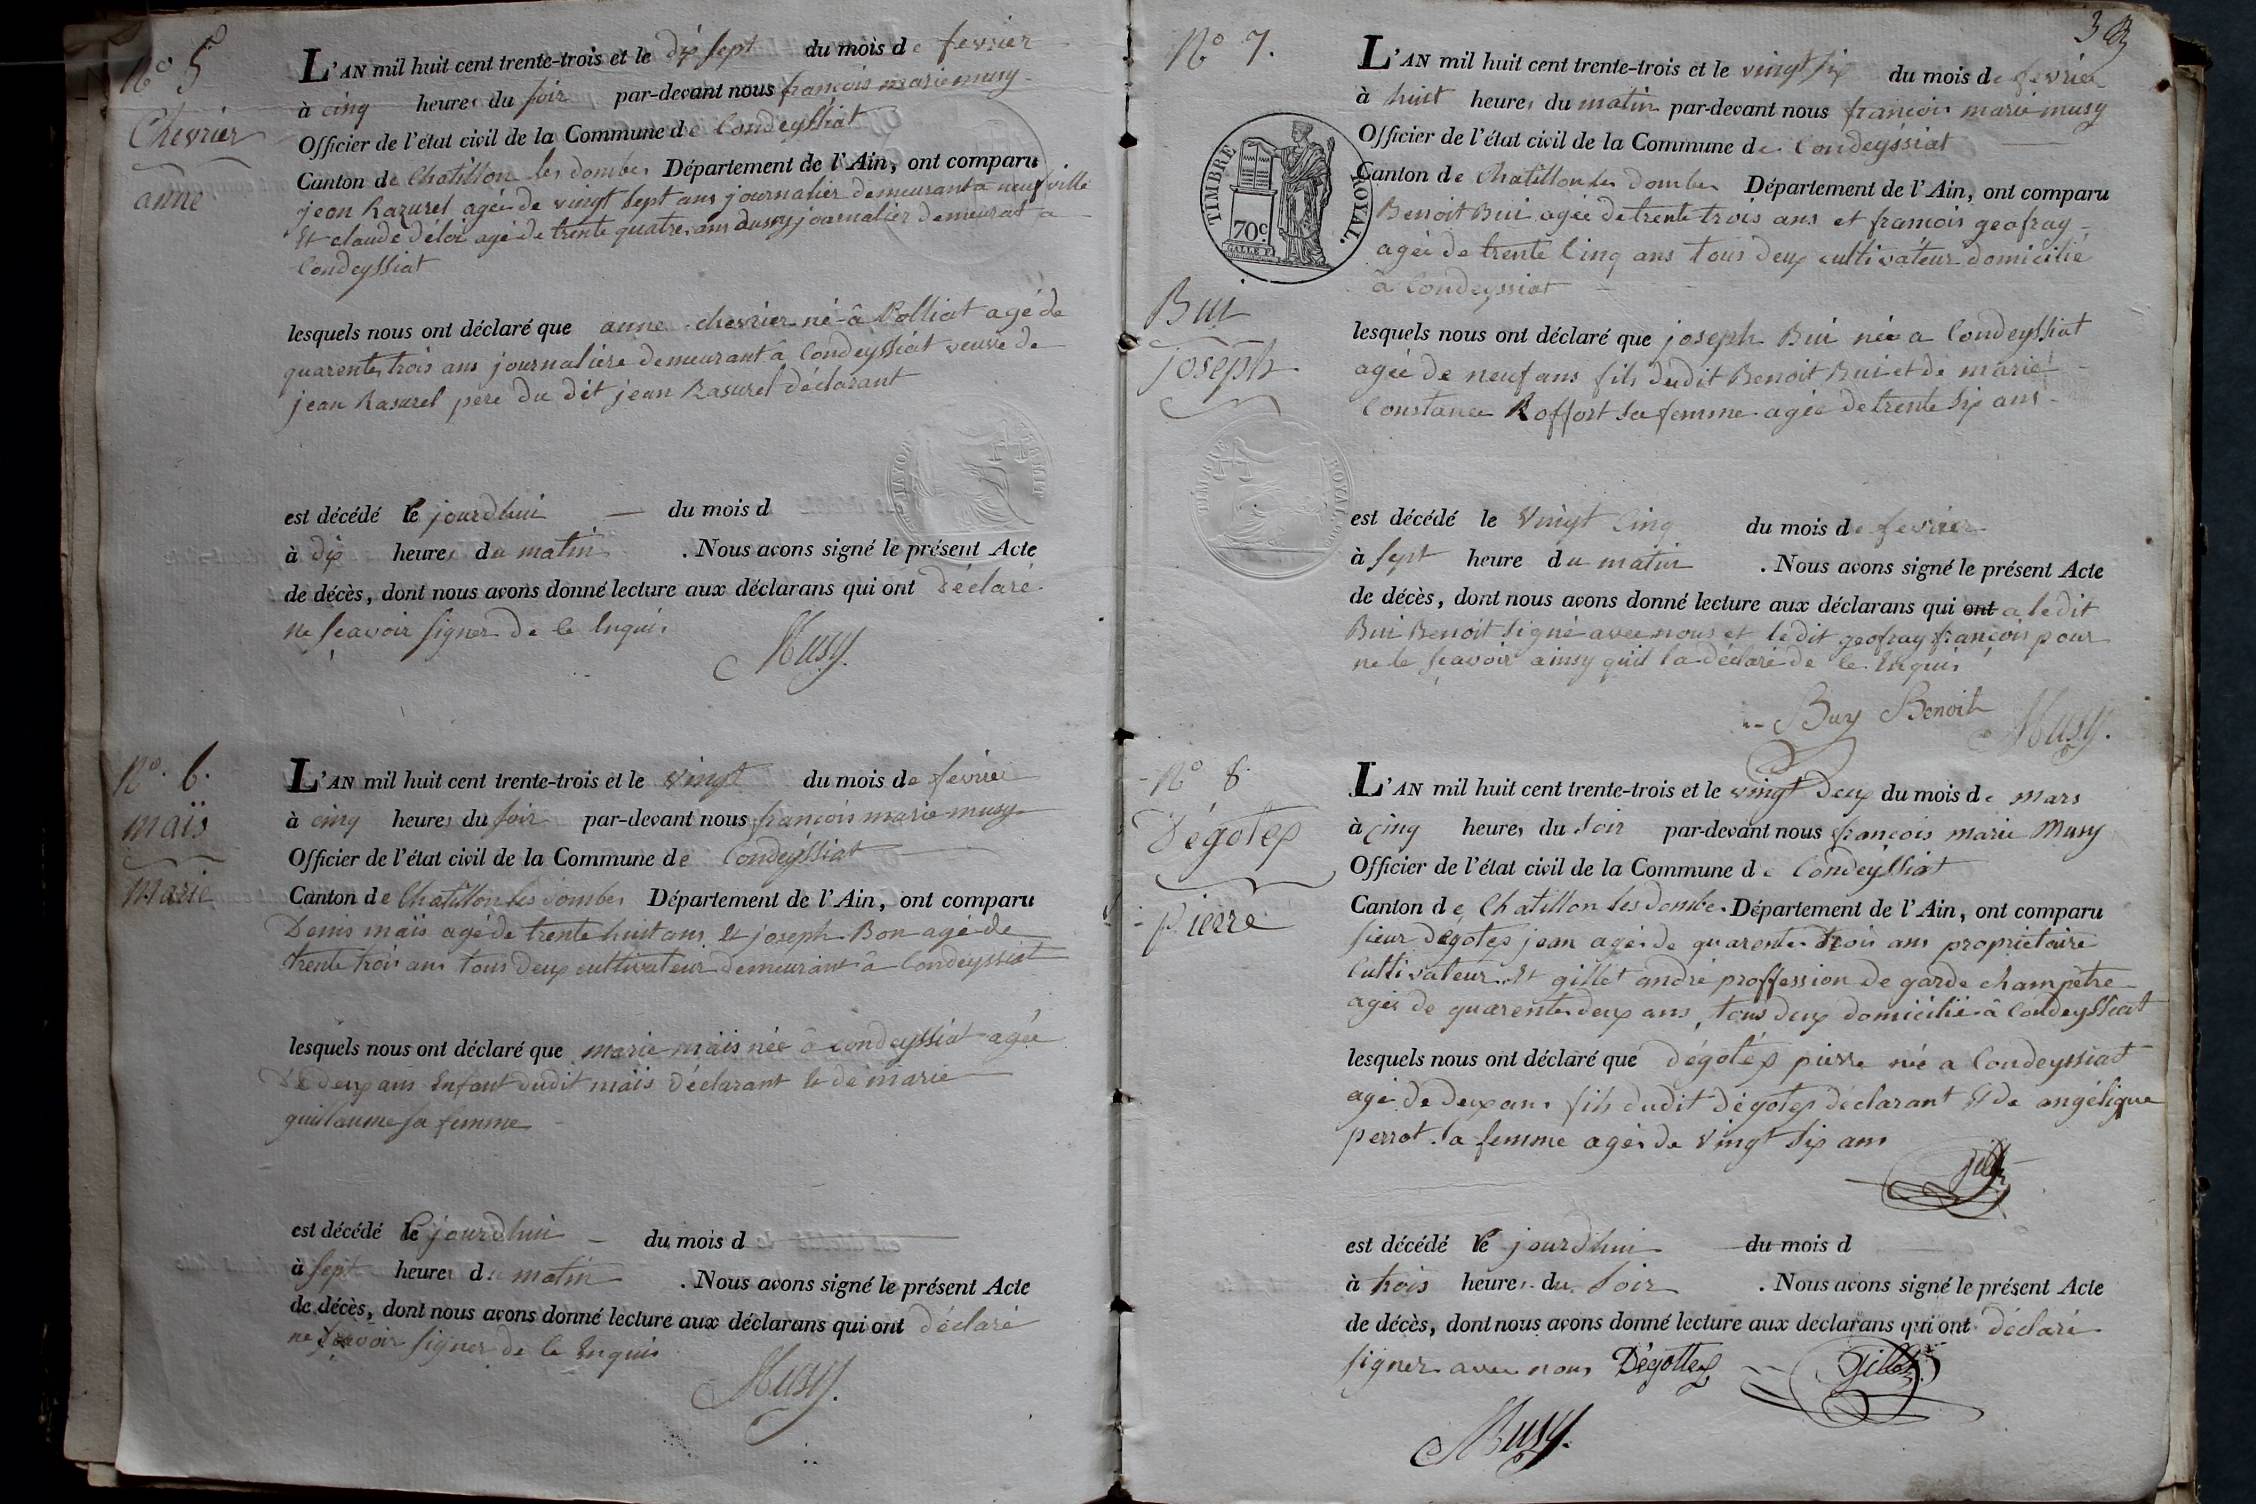 N° 5
Chevrier
anne
L'AN mil huit cent trente-trois et le dix sept du mois de fevrier
à cinq heures du soir par-devant nous françois marie musy
Officier de l'état civil de la Commune de Condeyssiat
Canton de Chatillon les dombes Département de l'Ain, ont comparu
jean Razurel agée de vingt sept ans journalier demeurant a neufville
Et claude déloi agé de trente quatre ans aussy journalier demeurat a
Condeyssiat
lesquels nous ont déclaré que anne chevrier né â Polliat agé de
quarente trois ans journaliere demeurant â Condeyssiat veuve de
jean Rasurel pere du dit jean Rasurel déclarant
est décédé le jourdhui du mois d
à dix heures du matin . Nous avons signé le présent Acte
de décès, dont nous avons donné lecture aux déclarans qui ont déclaré
ne sçavoir signer de ce Enquis
Musy.
N° 6.
maïs
Marie
L'AN mil huit cent trente-trois et le vingt du mois de fevrier
à cinq heures du soir par-devant nous françois marie musy
Officier de l'état civil de la Commune de Condeyssiat
Canton de Chatillon les dombes Département de l'Ain, ont comparu
Denis maïs agé de trente huit ans Et joseph Bon agé de
trente trois ans tous deux cultivateur demeurant â Condeyssiat
lesquels nous ont déclaré que marie maïs née â condeyssiat agée
de deux ans Enfant dudit maïs déclarant & de marie
guillaume sa femme
est décédé le jourdhui du mois d
à sept heures du matin . Nous avons signé le présent Acte
de décès, dont nous avons donné lecture aux déclarans qui ont déclaré
ne sçavoir signer de ce Enquis
Musy.
3
N° 7.
TIMBRE ROYAL.
70c
Bui
joseph
L'AN mil huit cent trente-trois et le vingt six du mois de fevrier
à huit heures du matin par-devant nous françois marie musy
Officier de l'état civil de la Commune de Condeyssiat
Canton de Chatillon les dombes Département de l'Ain, ont comparu
Benoit Bui agée de trente trois ans et francois geofray
agée de trente Cinq ans tous deux cultivateur domicilié
â Condeyssiat
lesquels nous ont déclaré que joseph Bui née a Condeyssiat
agée de neuf ans fils dudit Benoit Bui et de marie
Constance Roffort sa femme agée de trente six ans
TIMBRE ROYAL
est décédé le vingt Cinq du mois de fevrier
à sept heure du matin . Nous avons signé le présent Acte
de décès, dont nous avons donné lecture aux déclarans qui ont a ledit
Bui Benoit signé avec nous et ledit geofray françois pour
ne le sçavoir ainsy quil la déclaré de ce Enquis
Buy Benoit Musy.
N° 8
Dégotex
pierre
L'AN mil huit cent trente-trois et le vingt deux du mois de mars
à cinq heures du soir par-devant nous françois marie Musy
Officier de l'état civil de la Commune de Condeyssiat
Canton de Chatillon les dombes Département de l'Ain, ont comparu
sieur Dégotex jean agée de quarente trois ans proprietaire
Cultivateur Et gillet andré proffession de garde champêtre
agés de quarente deux ans, tous deux domicilié â Condeyssiat
lesquels nous ont déclaré que dégotéx pierre né a Condeyssiat
agé de deux ans fils dudit dégotex déclarant & de angélique
perrot sa femme agés de vingt six ans
Gillet
est décédé le jourdhui du mois d
à trois heures du soir . Nous avons signé le présent Acte
de décès, dont nous avons donné lecture aux déclarans qui ont déclaré
signer avec nous Dégottex Gillet
Musy.